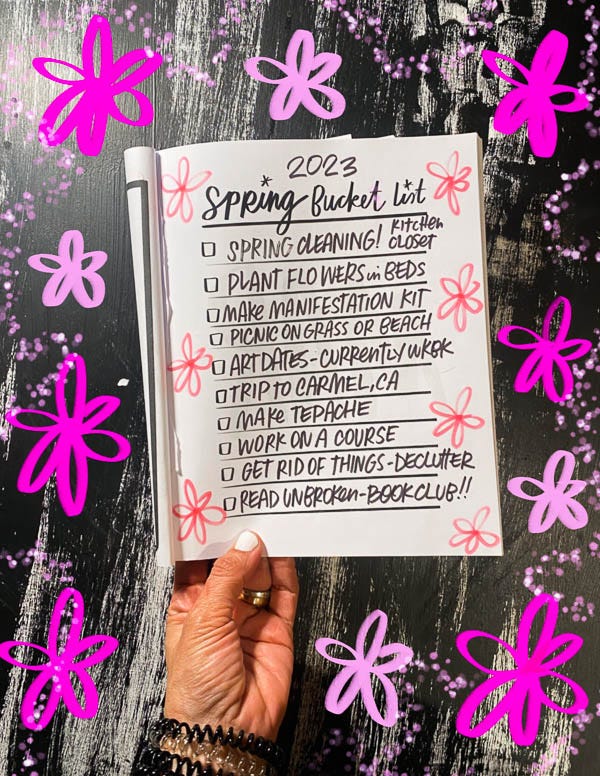 2023
Spring Bucket list
SPRING CLEANING! Kitchen closet
PLANT FLOWERS in BEDS
MAKE MANIFESTATION KIT
PICNIC ON GRASS OR BEACH
ART DATES - CURRENTLY WKBK
TRIP TO CARMEL, CA
MAKE TEPACHE
WORK ON A COURSE
GET RID OF THINGS - DECLUTTER
READ UNBROKEN - BOOK CLUB!!